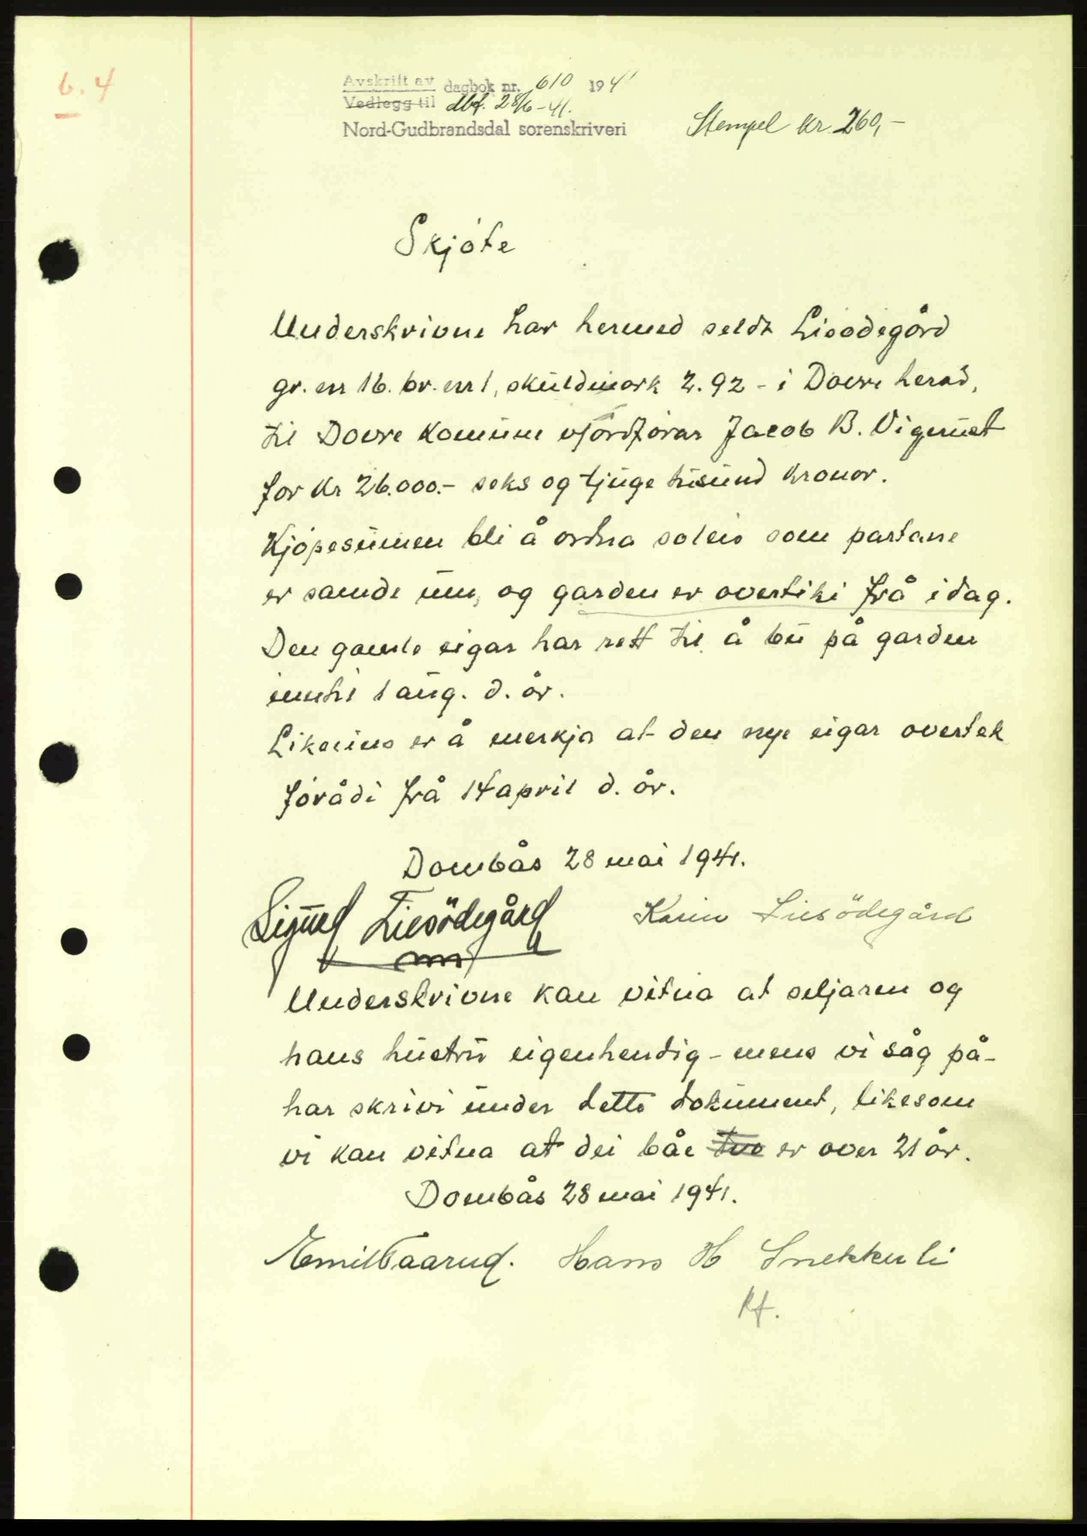 6.4
Avskrift av dagbok nr. 610 1941
Vedlegg til dbf. 28/6-41.
Nord-Gudbrandsdal sorenskriveri
Stempel kr. 260,-
Skjøte
Underskrivne har hermed seldt Liesødegård
gr. nr 16. br. nr 1, skuldmork 2.92 - i Dovre herad,
til Dovre Komune v/ordførar Jacob B. Vigerust
for Kr 26.000.- seks og tjuge tusund kronor.
Kjøpesumen bli å ordna soleis som partane
er samde um, og garden er overtiki frå idag.
Den gamle eigar har rett til å bu på garden
inntil 1 aug. d. år.
Likeeins er å merkja at den nye eigar overtek
forådi frå 14 april d. år.
Dombås 28 mai 1941.
Sigurd Liesödegård Karin Liesödegård
Underskrivne kan vitna at seljaren og
hans hustru eigenhendig - mens vi såg på -
har skrivi under dette dokument, likesom
vi kan vitna at dei båe two er over 21 år.
Dombås 28 mai 1941.
Emil Faarud. Hans H Snekkerli
Rf.